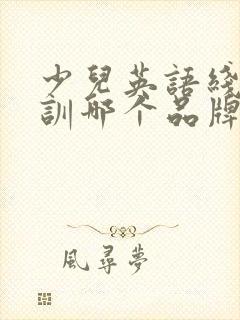 少兒英語綫
訓哪个品牌
風尋夢